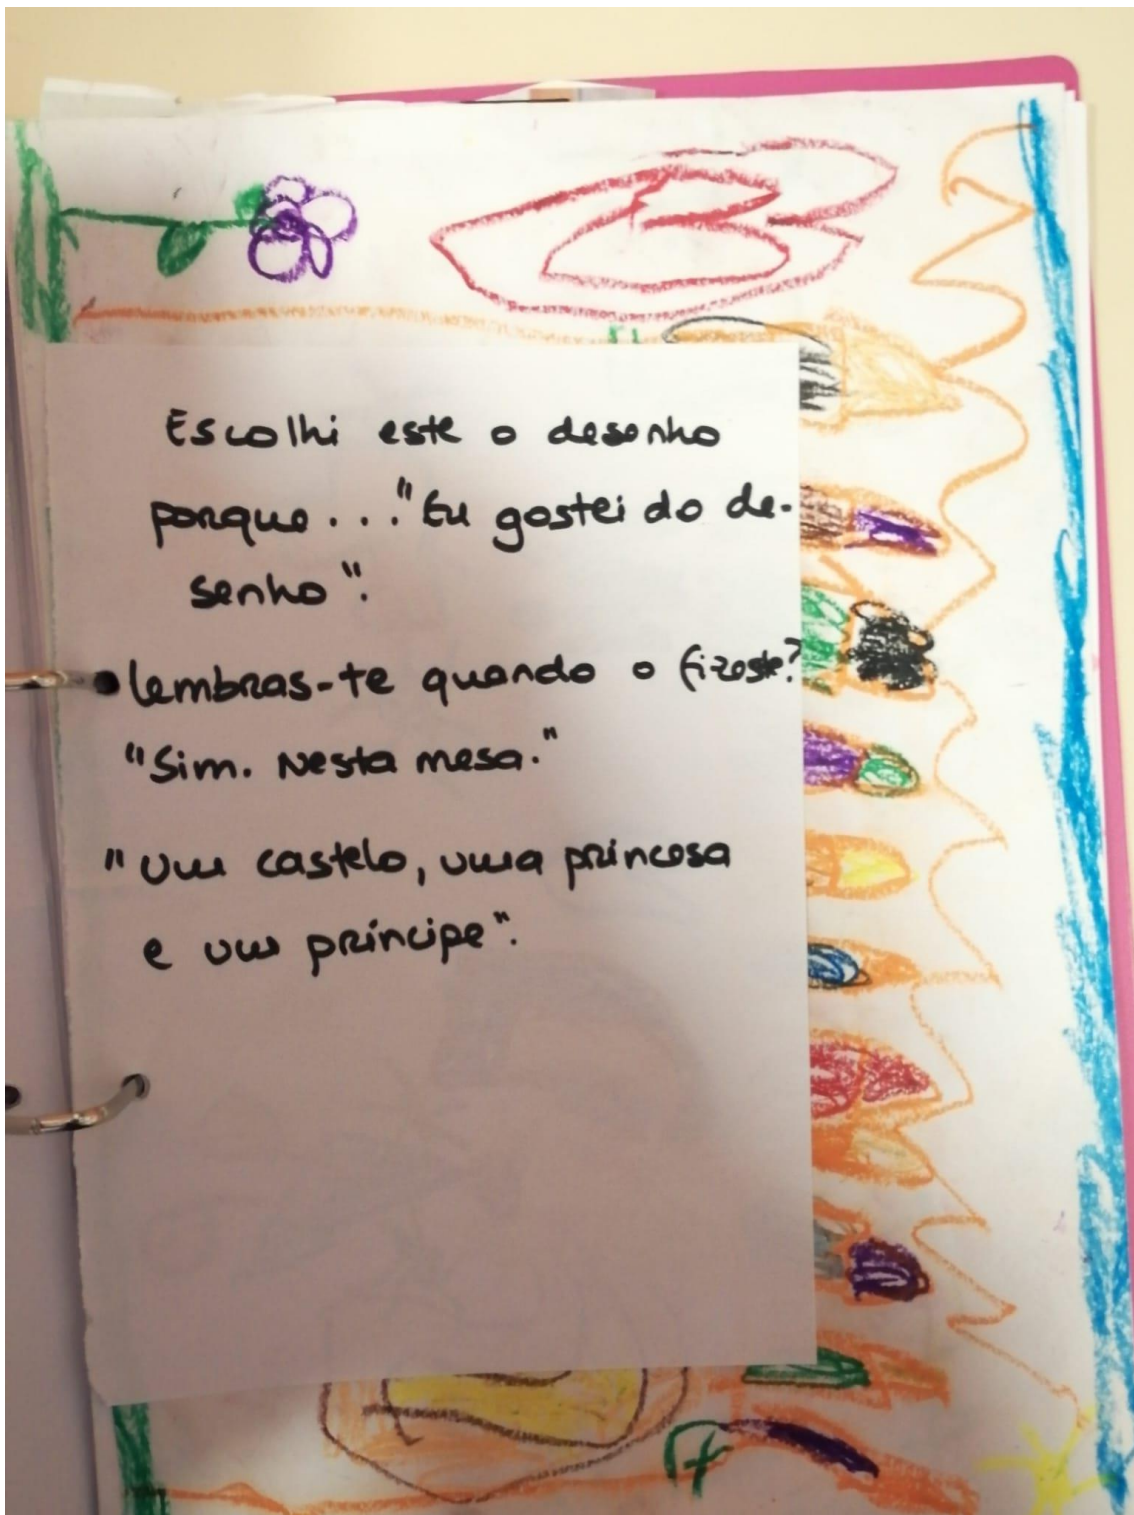 Escolhi este o desenho
porque ... "Eu gostei do de-
senho".
lembras-te quando o fizeste?
"Sim. Nesta mesa."
"Um castelo, uma princesa
e um príncipe".